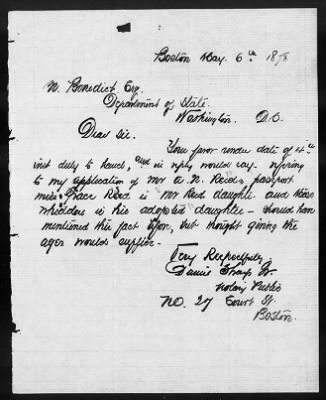 Boston May. 6th 1878
N. Benedict Esq.
Department of State.
Washington. D.C.
Dear Sir.
Your favor under date of 4th
inst duly to hand, and in reply would say - refering
to my application of Mr A. N. Reids passport
miss Grace Reid is Mr Reid daughter and Miss
Wheildon is his adopted daughter - should have
mentioned this fact upon, but thought giving the
ages would suffice -
Very Respectfully
Sharp Jr.
Notary Public
No. 27 Court St.
Boston.